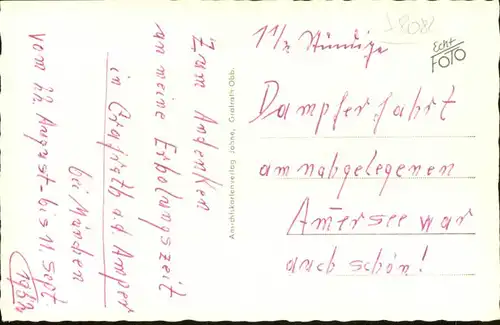 Zum Andenken
an meine Erholungszeit
in Grafrath a.d. Amper
bei München
vom 22. August - bis 11. Sept.
Ansichtskartenverlag Jahne, Grafrath Obb.
Echt
FOTO
11/2 Stündige
Dampferfahrt
am nahgelegenen
Amersee war
auch schön!